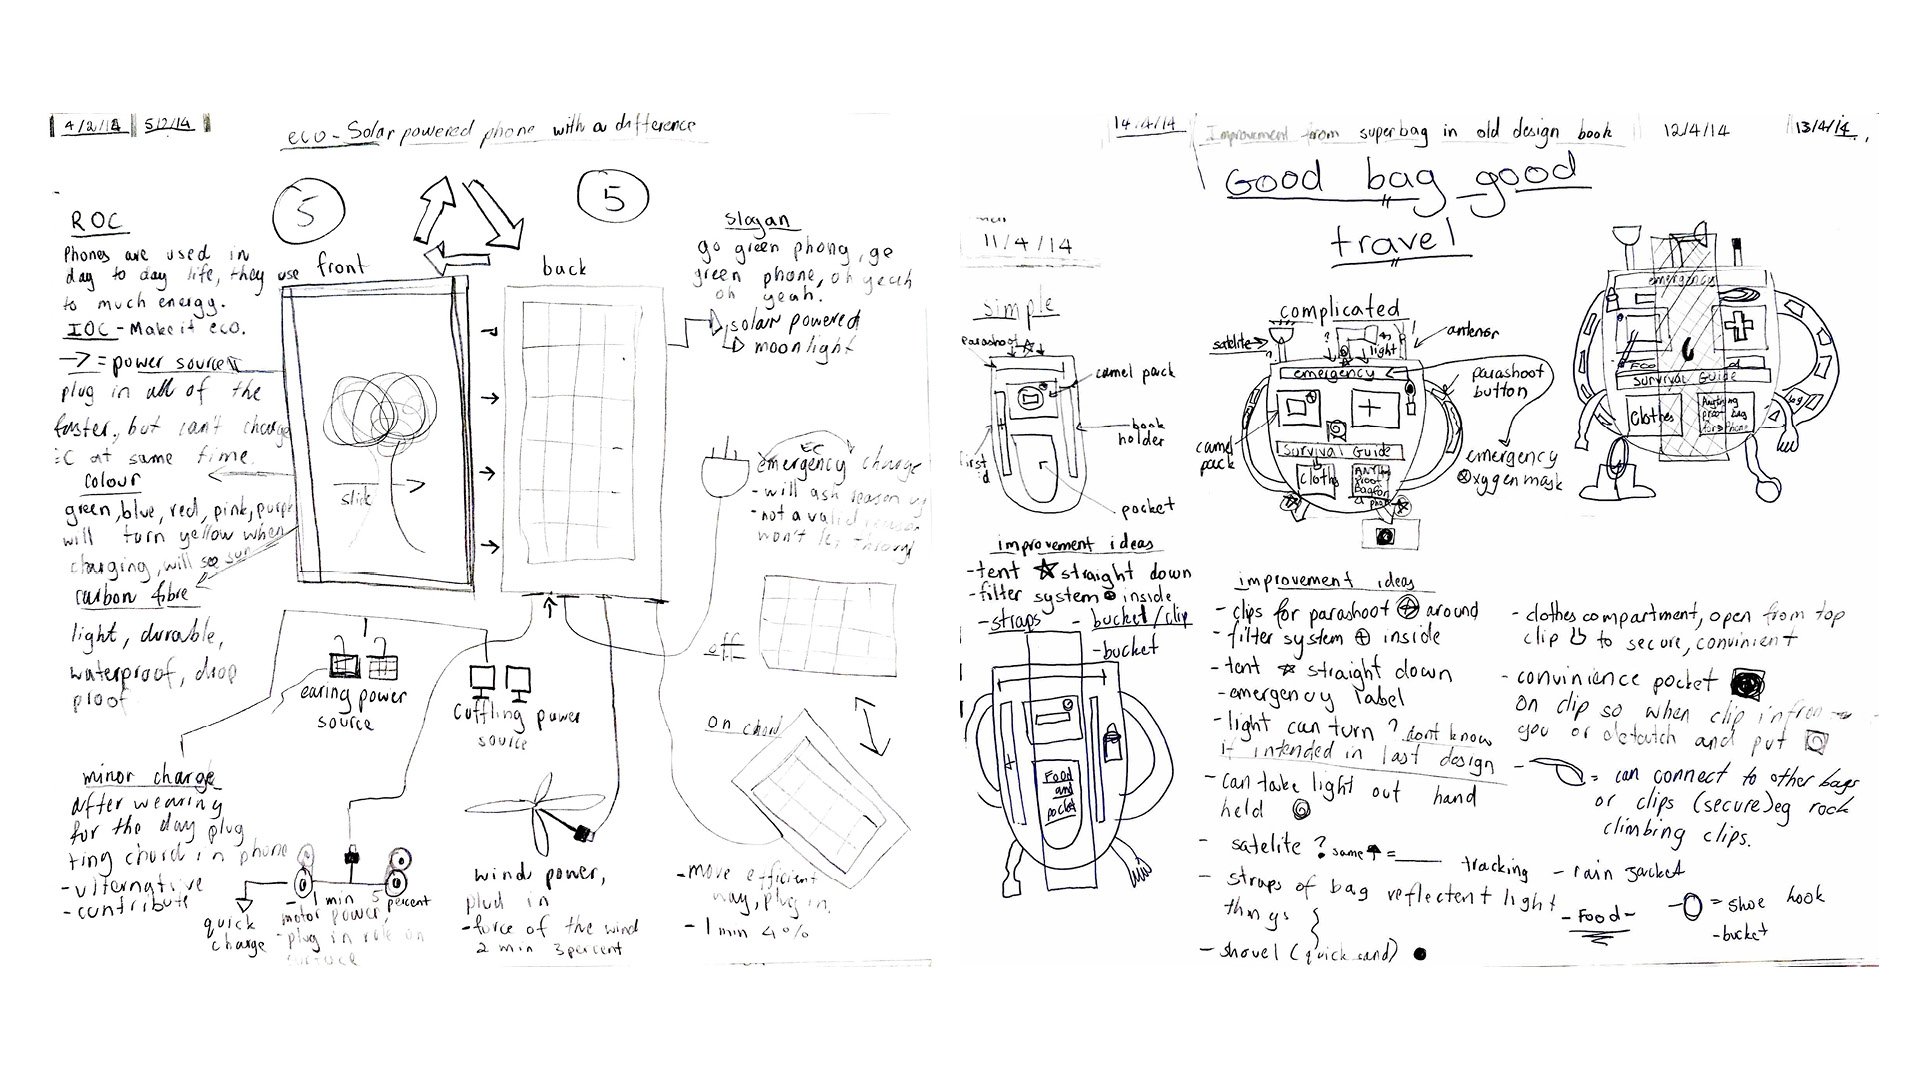 4/2/14
5/2/14
eco - Solar powered phone with a difference
5
5
ROC
Phones are used in
day to day life, they use
to much energy.
IOC - Make it eco.
→ = power source
plug in all of the
faster, but can't charge
EC at same time.
colour
green, blue, red, pink, purple
will turn yellow when
charging, will see sun
carbon fibre
light, durable,
waterproof, drop
proof
front
back
slide
slogan
go green phong, ge
green phone, oh yeah
oh yeah.
solar powered
moonlight
EC
emergency charge
- will ask reason
- not a valid
won't let through
off
on chord
earing power
source
cuffling power
source
minor charge
after wearing
for the day plug
ting chord in phone
- ulternative
- contribute
quick
charge
- 1 min 5 percent
motor power,
- plug in role on
surface
wind power,
plud in
- force of the wind
2 min 3 percent
- move efficient
way, plug in.
- 1 min 4%
14/4/14
Improvement from superbag in old design book
12/4/14
13/4/14
Good bag good
travel
11/4/14
simple
parashoot
camel pack
book
holder
first
pocket
improvement ideas
- tent straight down
- filter system inside
- straps
- bucket/clip
- bucket
Food
and
pocket
complicated
satelite
light
antenor
emergency
parashoot
button
camel
pack
Survival Guide
cloths
Anything
proof
bag for
a phone
emergency
oxygen mask
emergency
Eco
Survival Guide
clothes
Anything
proof bag
for phone
bag
improvement ideas
- clips for parashoot around
- filter system inside
- tent straight down
- emergency label
- light can turn ? dont know
if intended in last design
- can take light out hand
held
- satelite ? same = tracking
- straps of bag reflectent light
things
- shovel (quick sand)
- clothes compartment, open from top
clip to secure, convinient
- convinience pocket
on clip so when clip infron
you or detatch and put
- = can connect to other bags
or clips (secure) eg rock
climbing clips.
- rain jacket
- Food -
- = shoe hook
- bucket